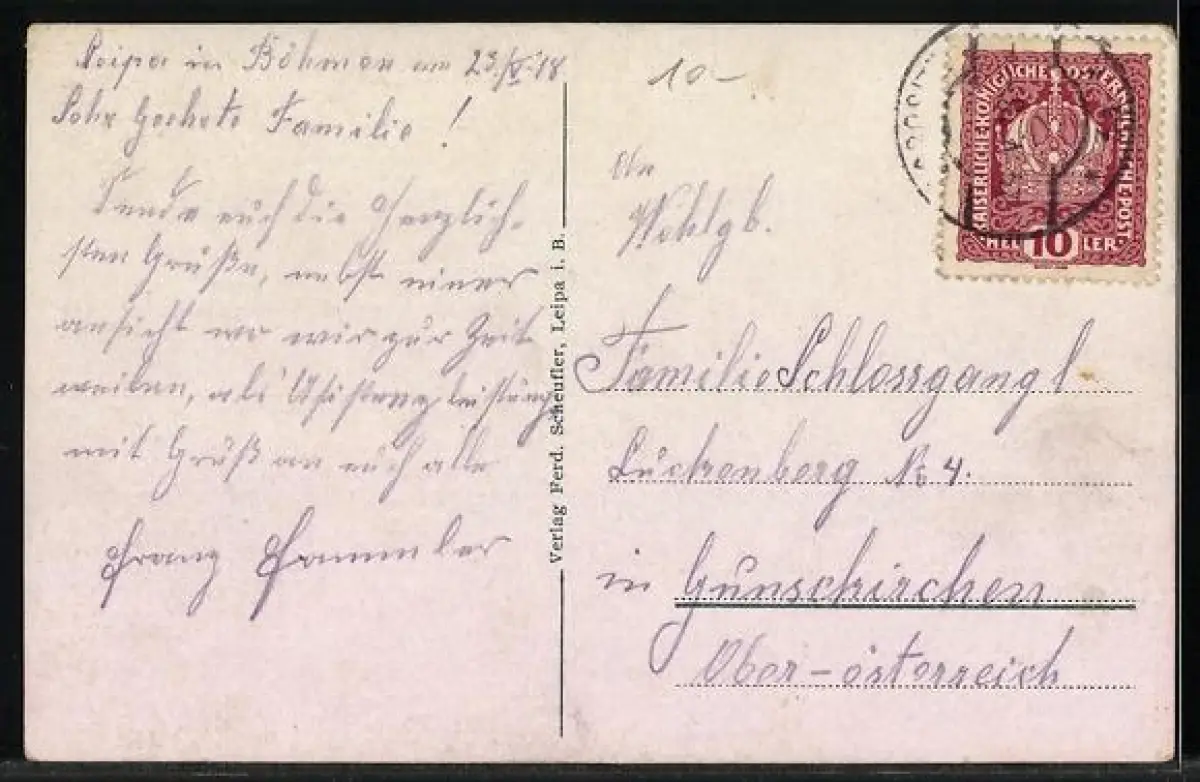 Leipa in Böhmen am 23/V. 18
Sehr Geehrte Familie!
Sende euch die Herzlich-
sten Grüße, nebst einer
ansicht wo wir zur Zeit
weilen, als
mit Gruß an euch alle
Franz
Verlag Ferd. Scheufler, Leipa i. B.
10-
KAISERLICHE·KÖNIGLICHE·ÖSTERREICHISCHE·POST
HELLER
10
An
Wohlgb.
Familie Schlossgangl
Luckenberg No 4.
in Gunschirchen
Ober-österreich